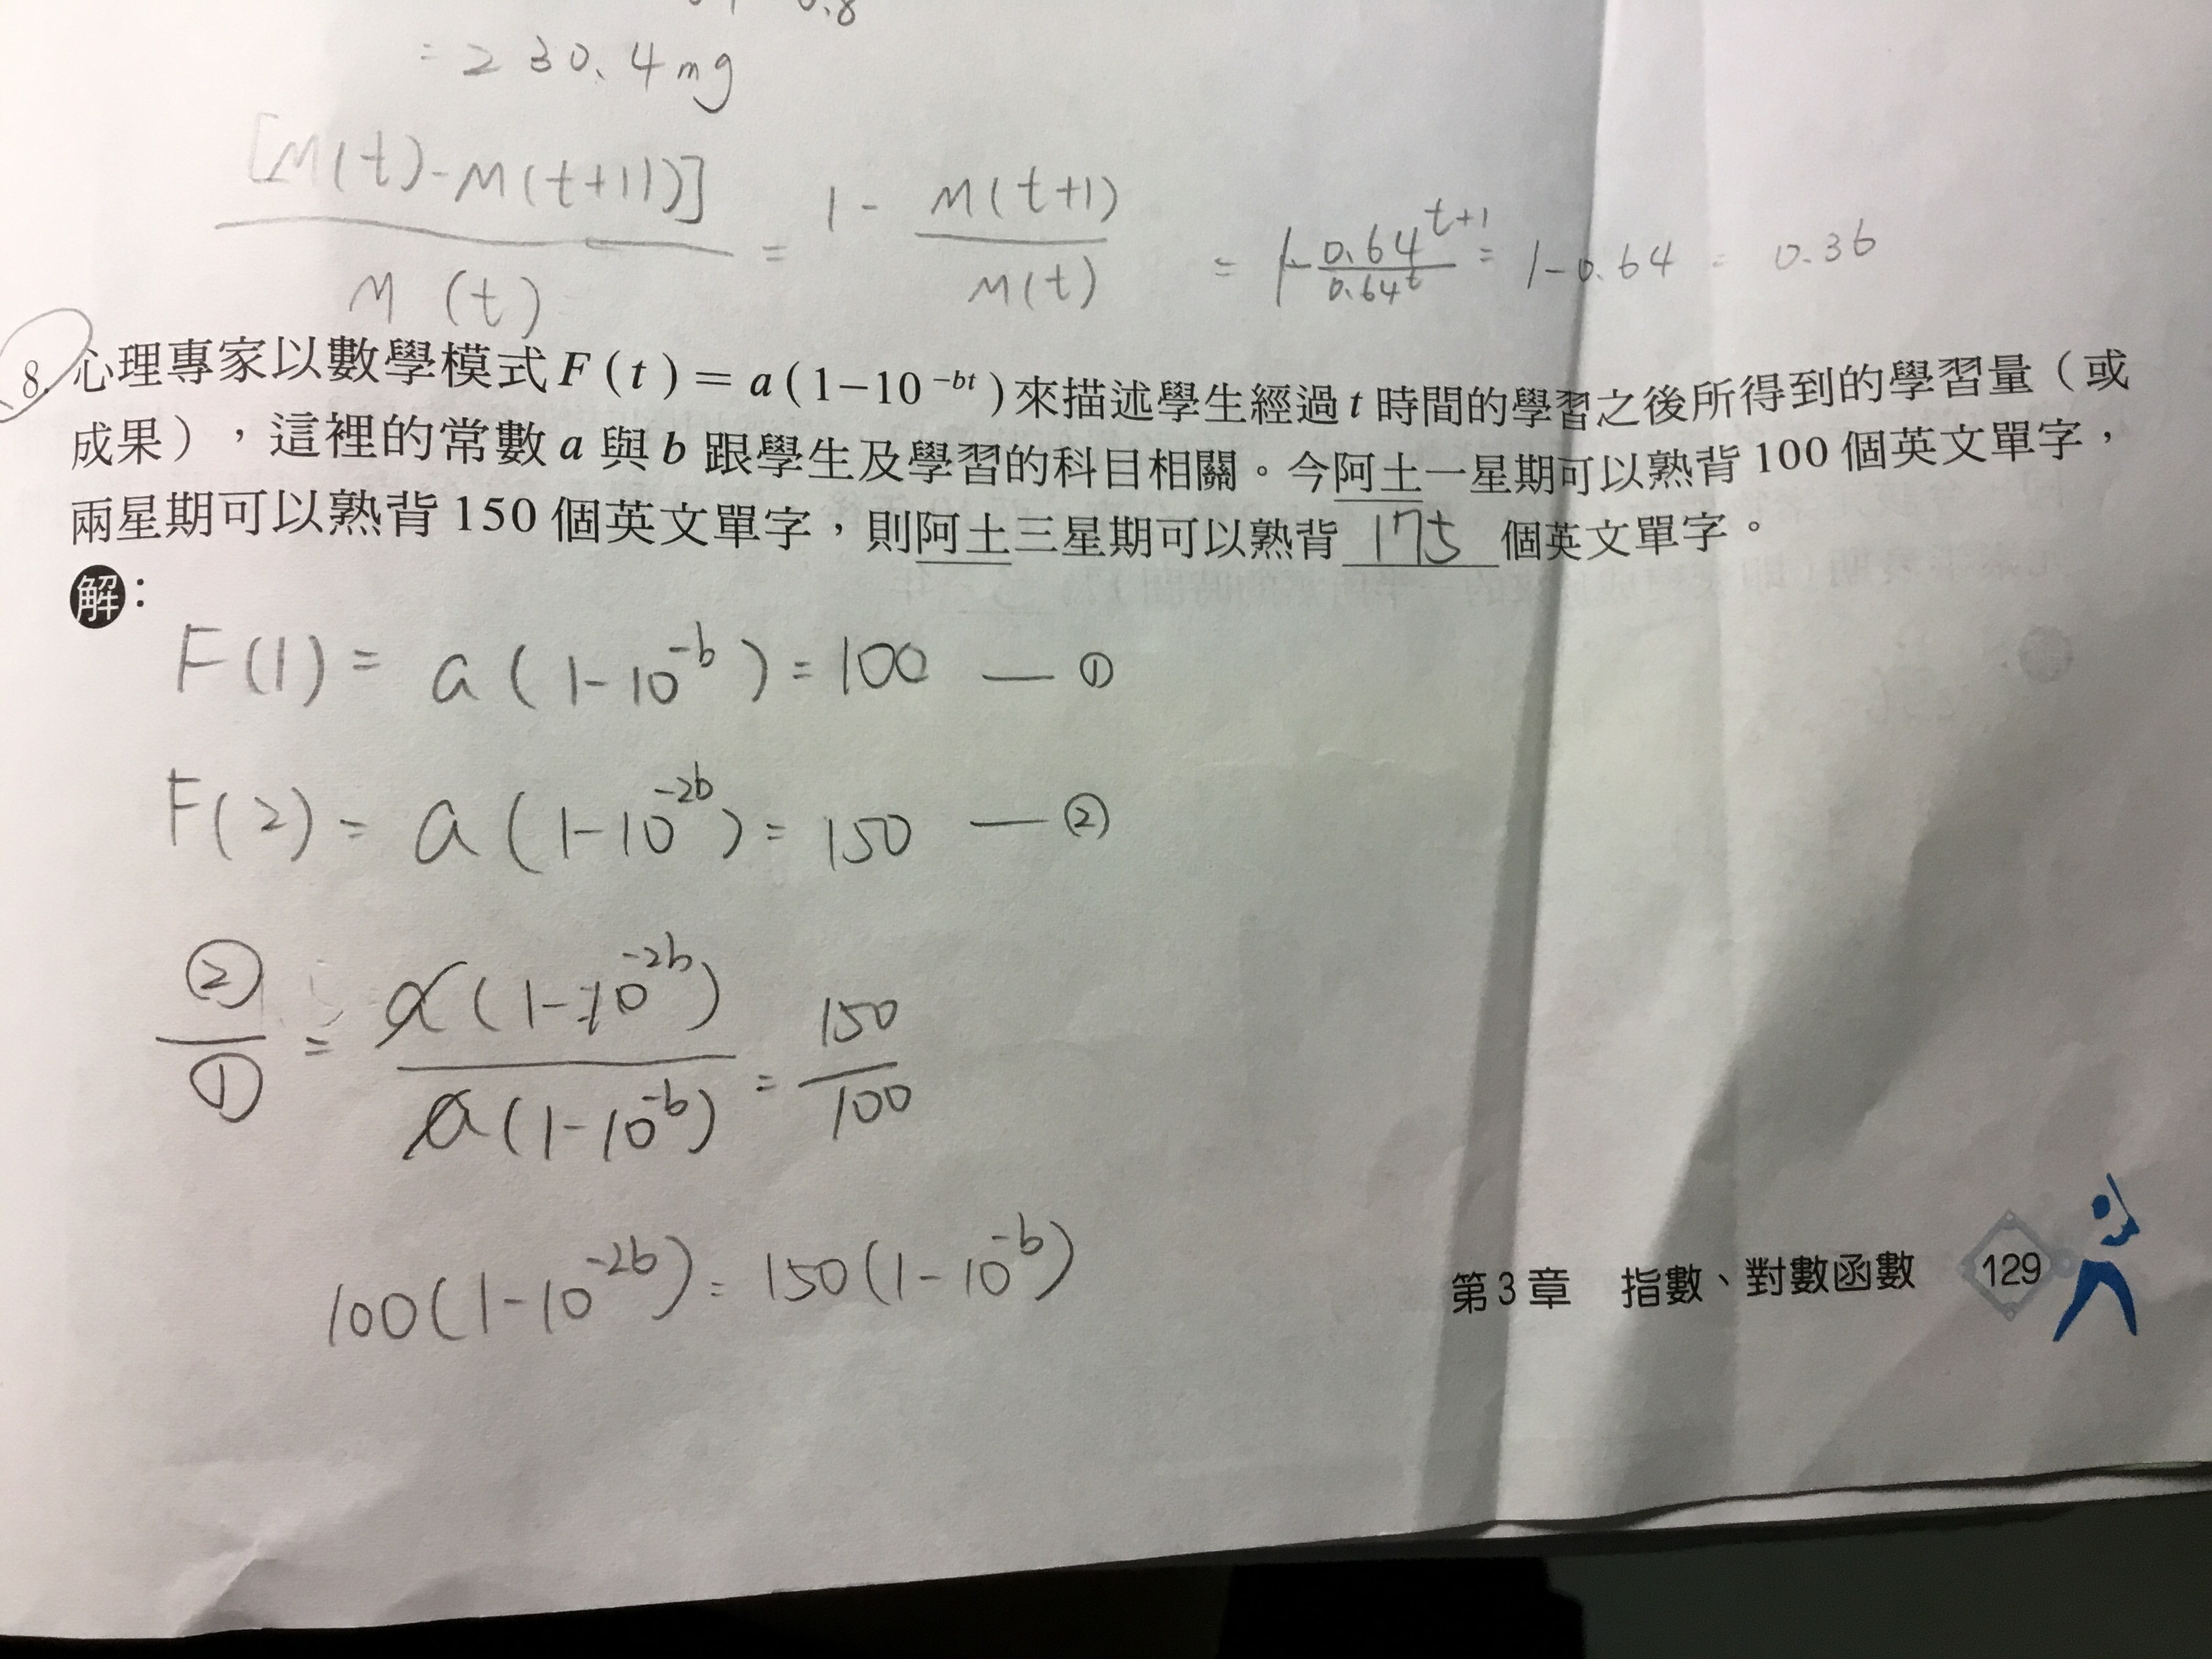 = 230.4mg
[M(t)-M(t+1)] / M(t) = 1 - M(t+1) / M(t) = 1 - 0.64^(t+1) / 0.64^t = 1-0.64 = 0.36
8. 心理專家以數學模式 F(t) = a(1−10^(−bt)) 來描述學生經過 t 時間的學習之後所得到的學習量(或
成果),這裡的常數 a 與 b 跟學生及學習的科目相關。今阿土一星期可以熟背 100 個英文單字,
兩星期可以熟背 150 個英文單字,則阿土三星期可以熟背 175 個英文單字。
解:
F(1) = a(1-10^(-b)) = 100 — ①
F(2) = a(1-10^(-2b)) = 150 — ②
② / ① = a(1-10^(-2b)) / a(1-10^(-b)) = 150 / 100
100(1-10^(-2b)) = 150(1-10^(-b))
第3章 指數、對數函數 129